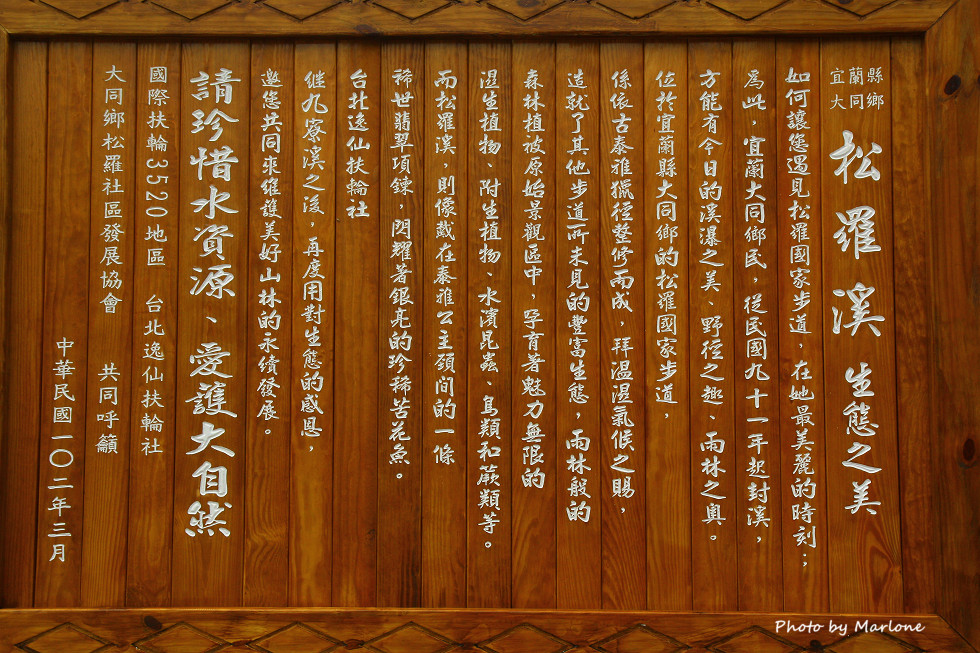 宜蘭縣
大同鄉
松羅溪生態之美
如何讓您遇見松羅國家步道，在她最美麗的時刻；
為此，宜蘭大同鄉民，從民國九十一年起封溪，
方能有今日的溪瀑之美、野徑之趣、雨林之奧。
位於宜蘭縣大同鄉的松羅國家步道，
係依古泰雅獵徑整修而成，拜溫濕氣候之賜，
造就了其他步道所未見的豐富生態，雨林般的
森林植被原始景觀區中，孕育著魅力無限的
濕生植物、附生植物、水濱昆蟲、鳥類和蕨類等。
而松羅溪，則像戴在泰雅公主頸間的一條
稀世翡翠項鍊，閃耀著銀亮的珍稀苦花魚。
台北逸仙扶輪社
繼九寮溪之後，再度用對生態的感恩，
邀您共同來維護美好山林的永續發展。
請珍惜水資源、愛護大自然
國際扶輪3520地區 台北逸仙扶輪社
大同鄉松羅社區發展協會 共同呼籲
中華民國一〇二年三月
Photo by Marlone